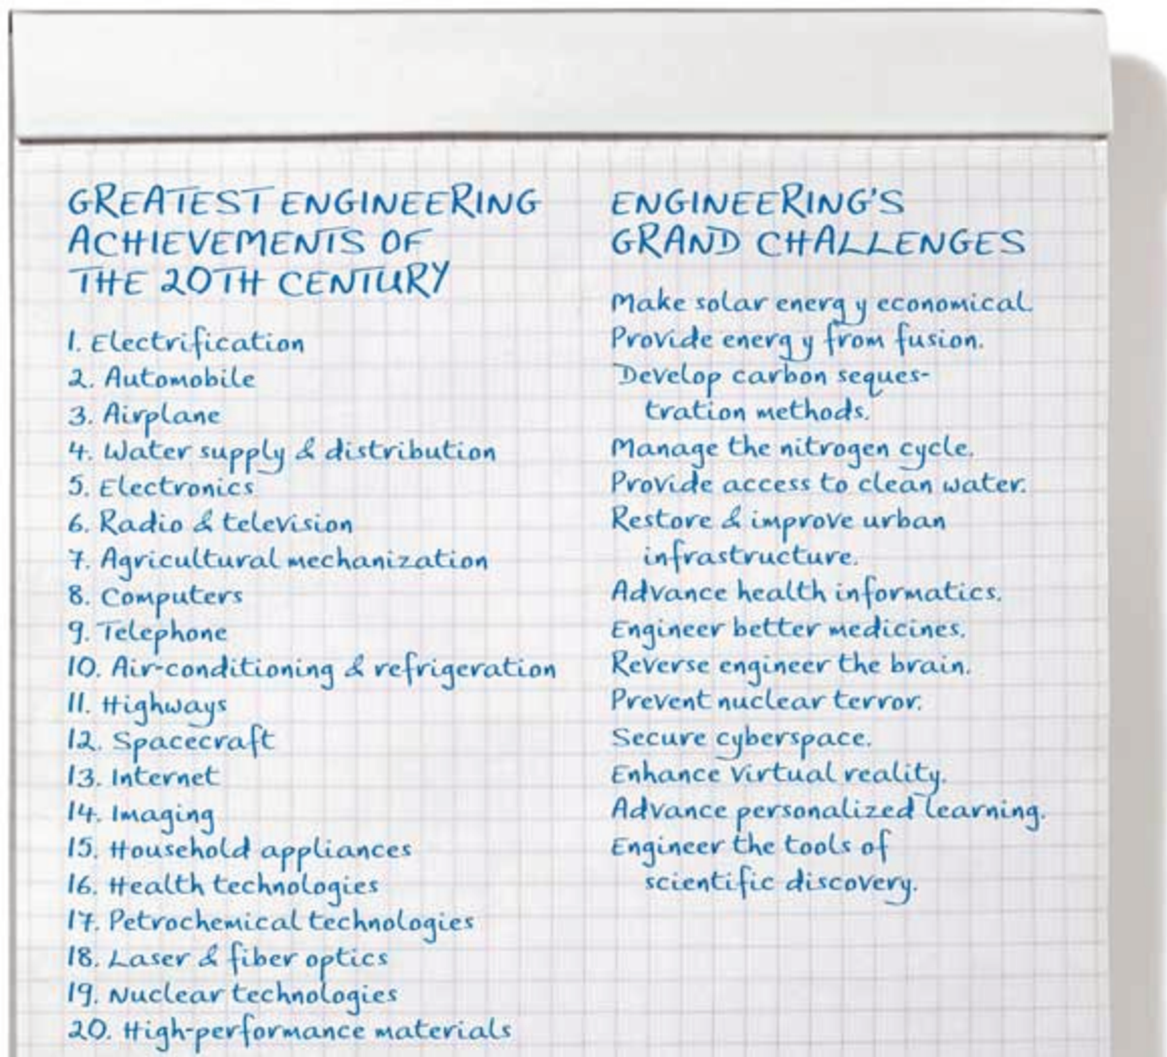 GREATEST ENGINEERING
ACHIEVEMENTS OF
THE 20TH CENTURY
1. Electrification
2. Automobile
3. Airplane
4. Water supply & distribution
5. Electronics
6. Radio & television
7. Agricultural mechanization
8. Computers
9. Telephone
10. Air-conditioning & refrigeration
11. Highways
12. Spacecraft
13. Internet
14. Imaging
15. Household appliances
16. Health technologies
17. Petrochemical technologies
18. Laser & fiber optics
19. Nuclear technologies
20. High-performance materials
ENGINEERING'S
GRAND CHALLENGES
Make solar energy economical.
Provide energy from fusion.
Develop carbon seques-
tration methods.
Manage the nitrogen cycle.
Provide access to clean water.
Restore & improve urban
infrastructure.
Advance health informatics.
Engineer better medicines.
Reverse engineer the brain.
Prevent nuclear terror.
Secure cyberspace.
Enhance virtual reality.
Advance personalized learning.
Engineer the tools of
scientific discovery.